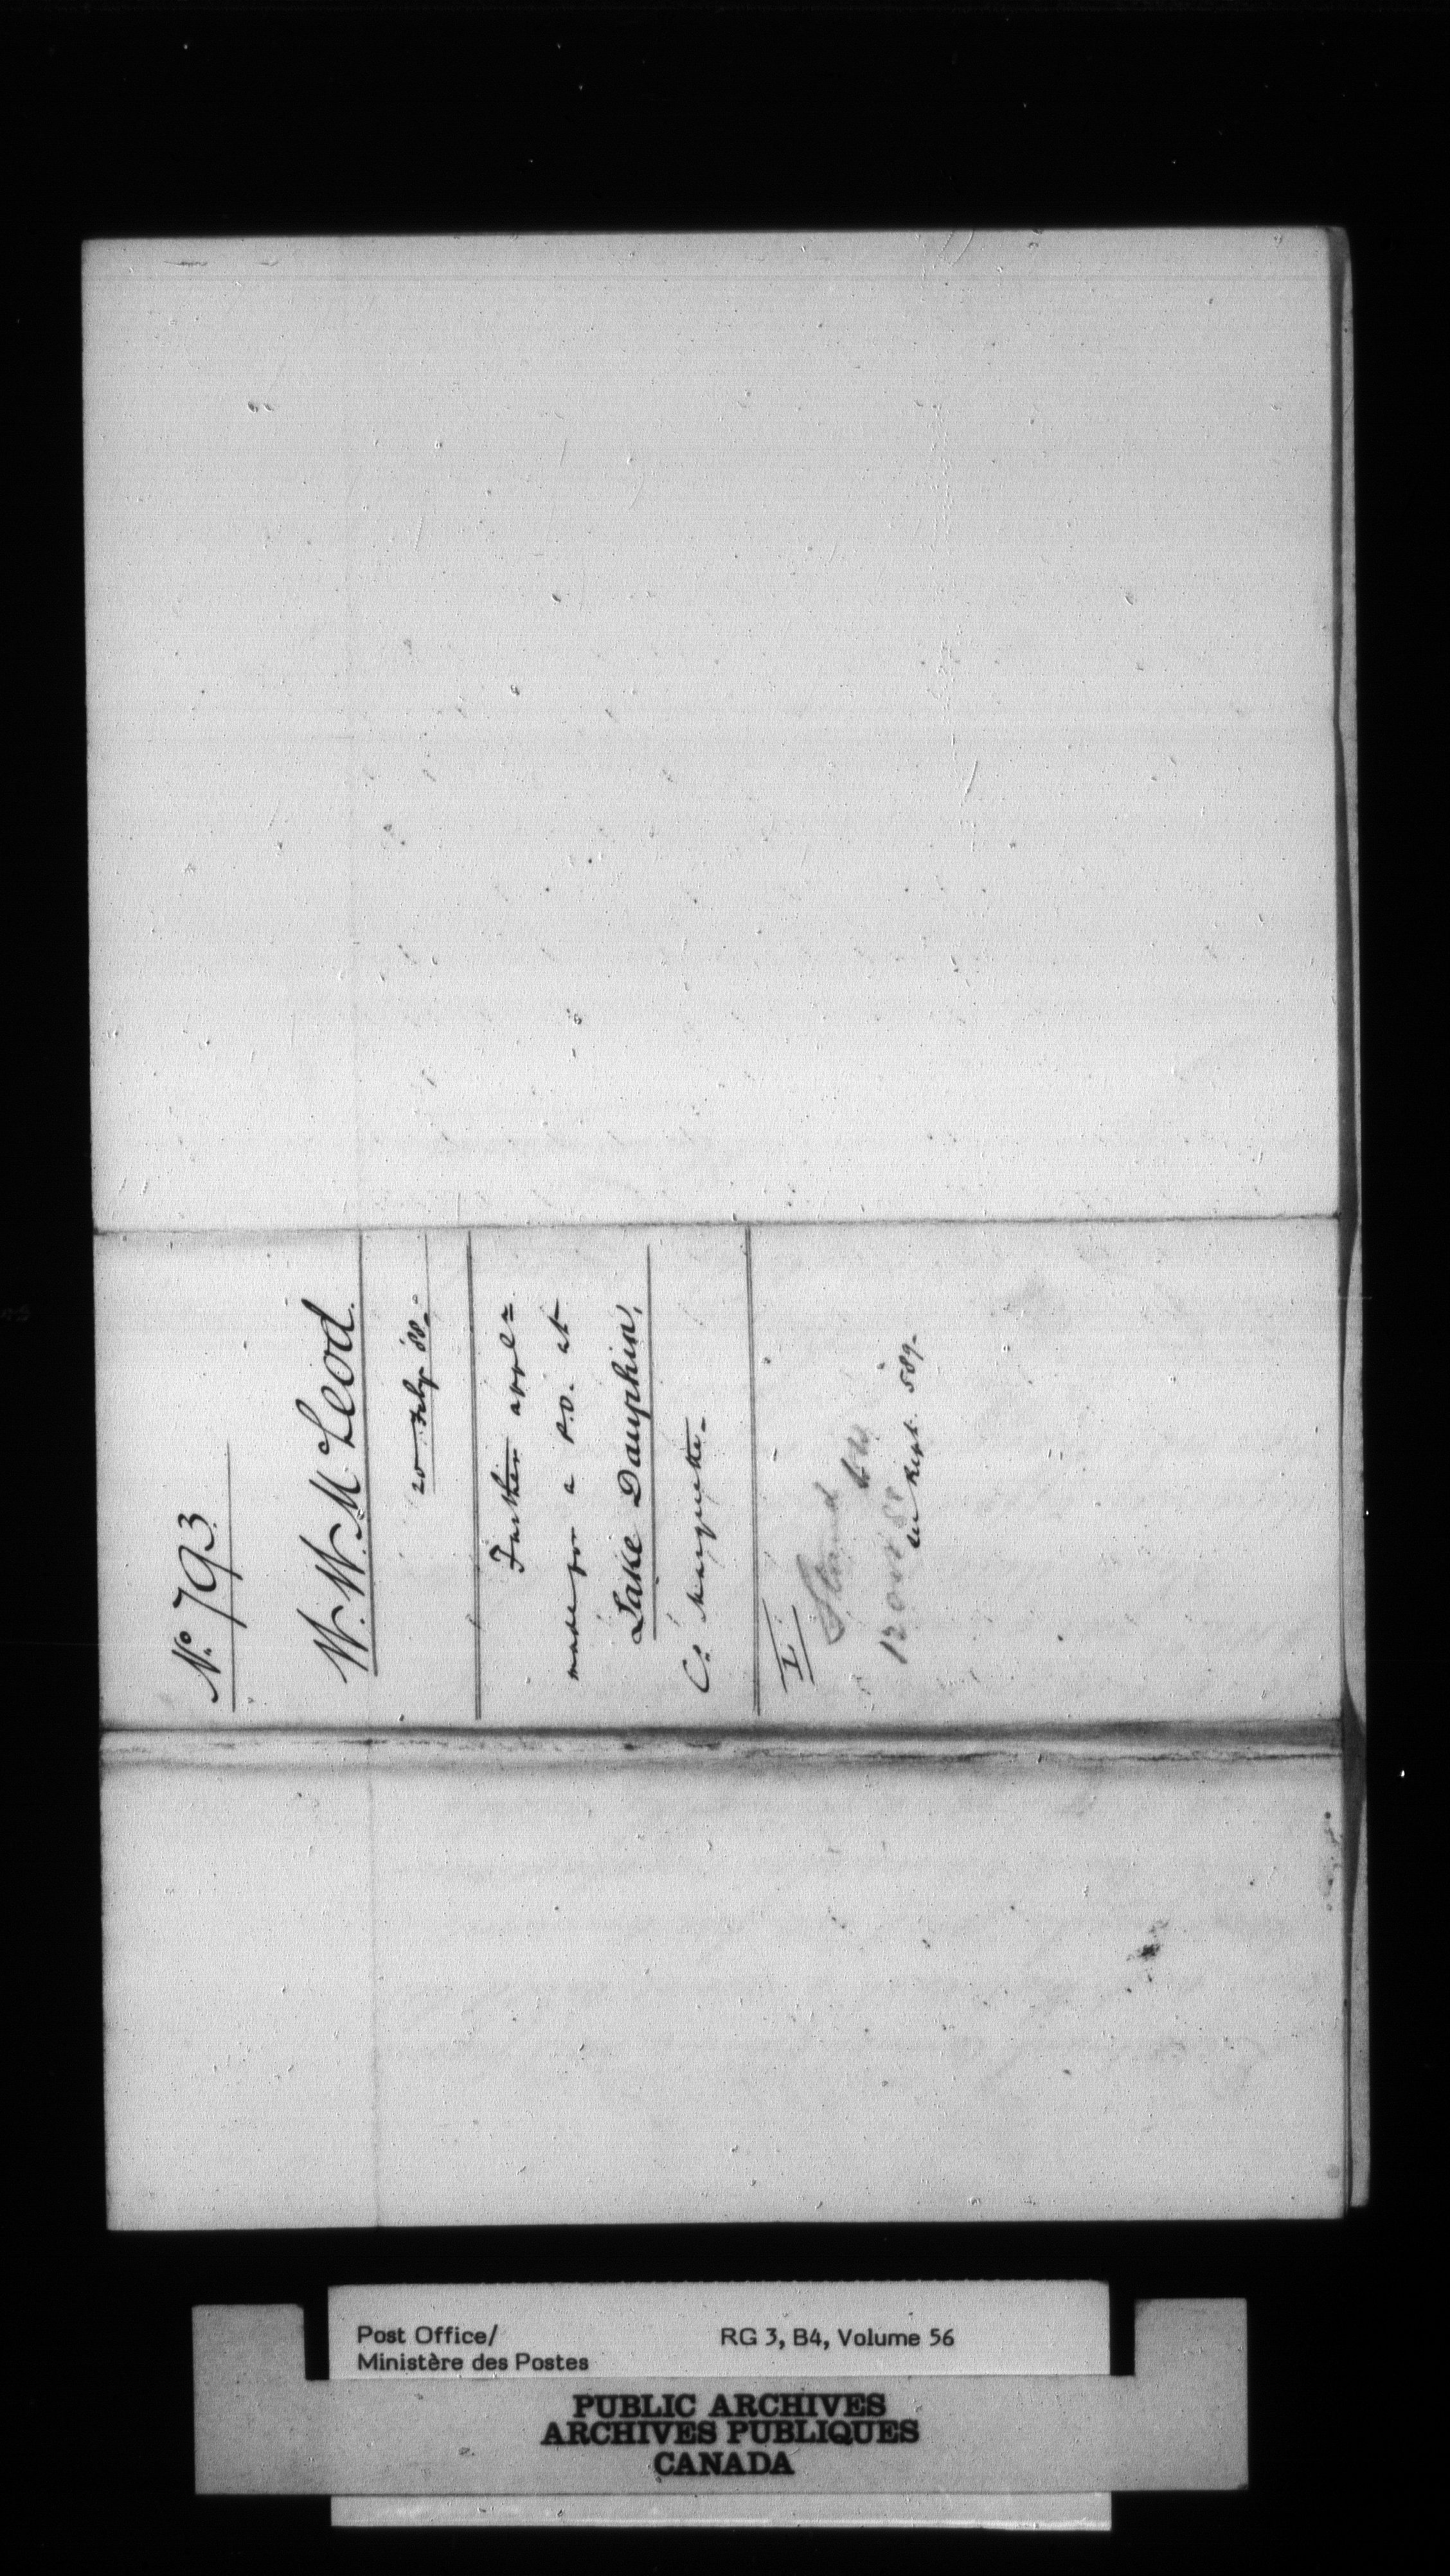 No. 793
W. W. McLeod.
20 Feby '88.
Further appln
made for a P.O. at
Lake Dauphin,
Co. Marquette.
I.
Stand
12 Oct 88
See Rept. 589.
Post Office/
Ministère des Postes
RG 3, B4, Volume 56
PUBLIC ARCHIVES
ARCHIVES PUBLIQUES
CANADA